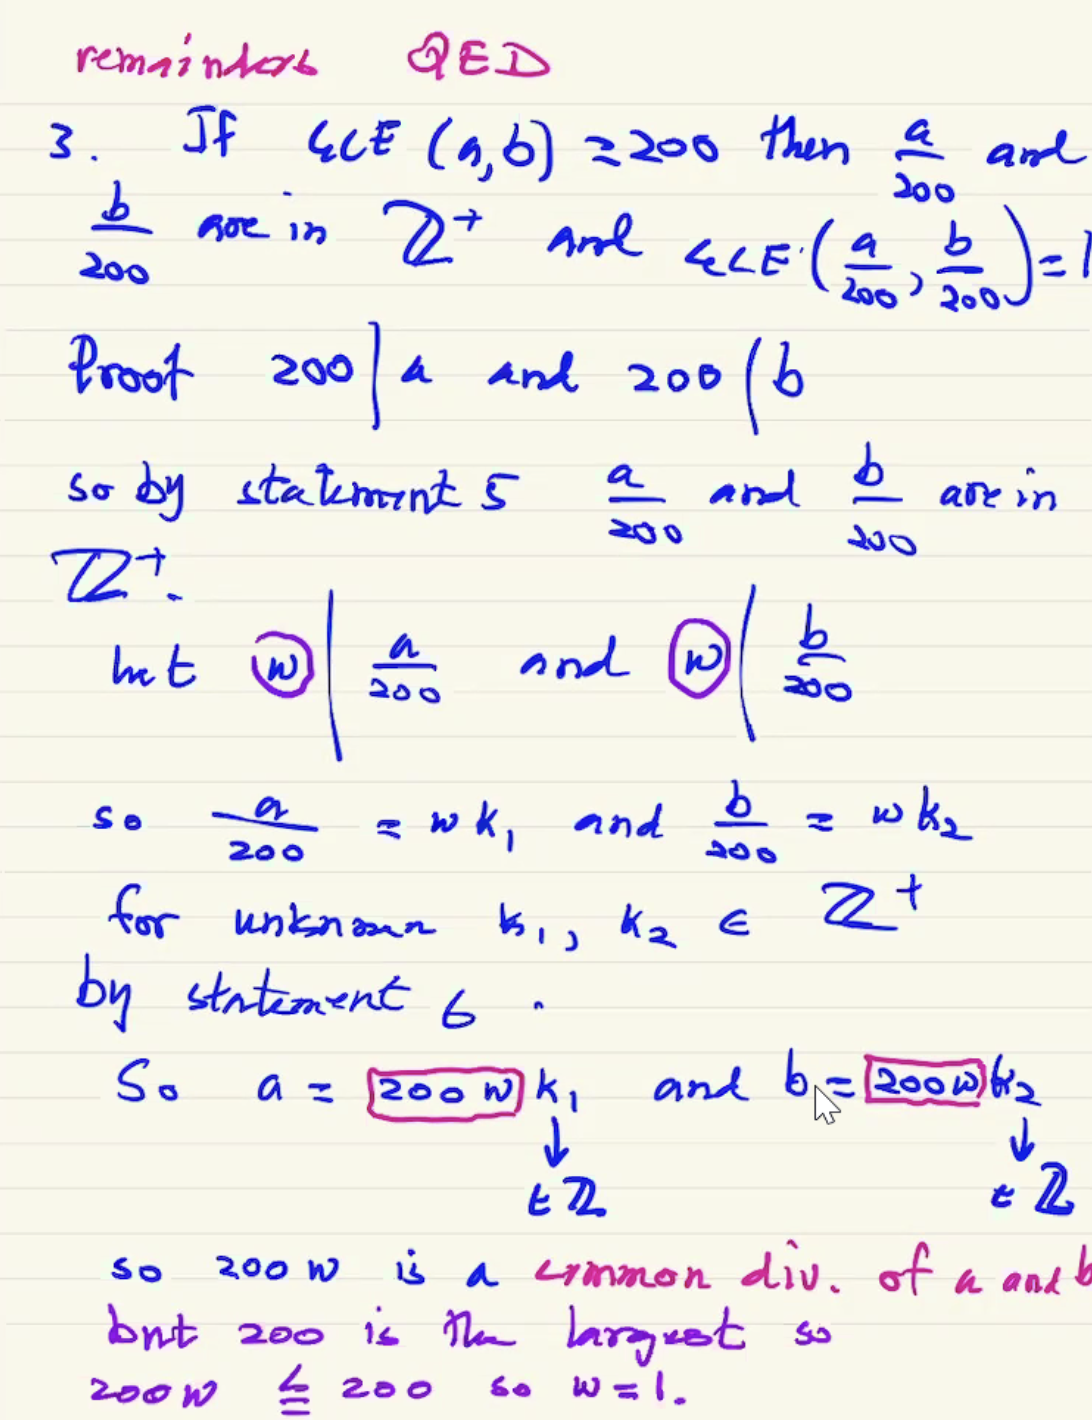 remainders QED
3. If GCF (a,b) = 200 then a/200 and
b/200 are in ℤ⁺ and GCF (a/200, b/200) = 1
Proof 200 | a and 200 | b
so by statement 5 a/200 and b/200 are in
ℤ⁺.
Let w | a/200 and w | b/200
so a/200 = w k₁ and b/200 = w k₂
for unknown k₁, k₂ ∈ ℤ⁺
by statement 6 .
So a = 200 w k₁ and b = 200 w k₂
↓ ↓
∈ ℤ ∈ ℤ
so 200 w is a common div. of a and b
but 200 is the largest so
200 w ≦ 200 so w = 1.